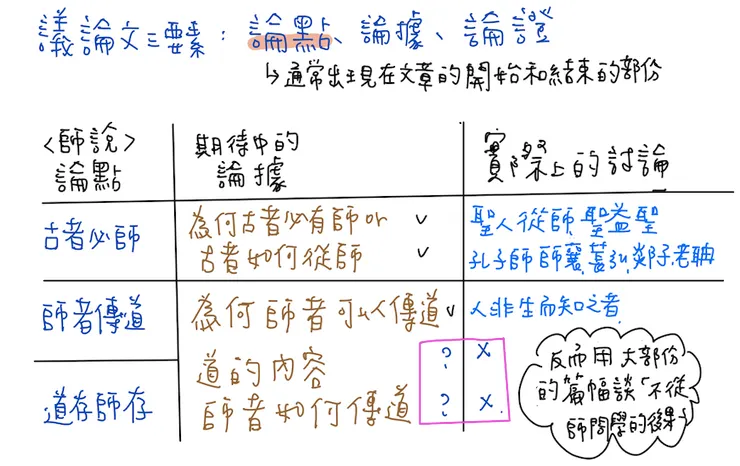 議論文三要素：論點、論據、論證
↳通常出現在文章的開始和結束的部份
<師說>
論點
期待中的
論據
實際上的討論
古者必師
為何古者必有師or ✓
古者如何從師 ✓
聖人從師,聖益聖
孔子師師襄、萇弘、郯子、老聃
師者傳道
為何師者可以傳道 ✓
人非生而知之者
道存師存
道的內容 ? X
師者如何傳道 ? X
反而用大部份
的篇幅談「不從
師問學的後果」